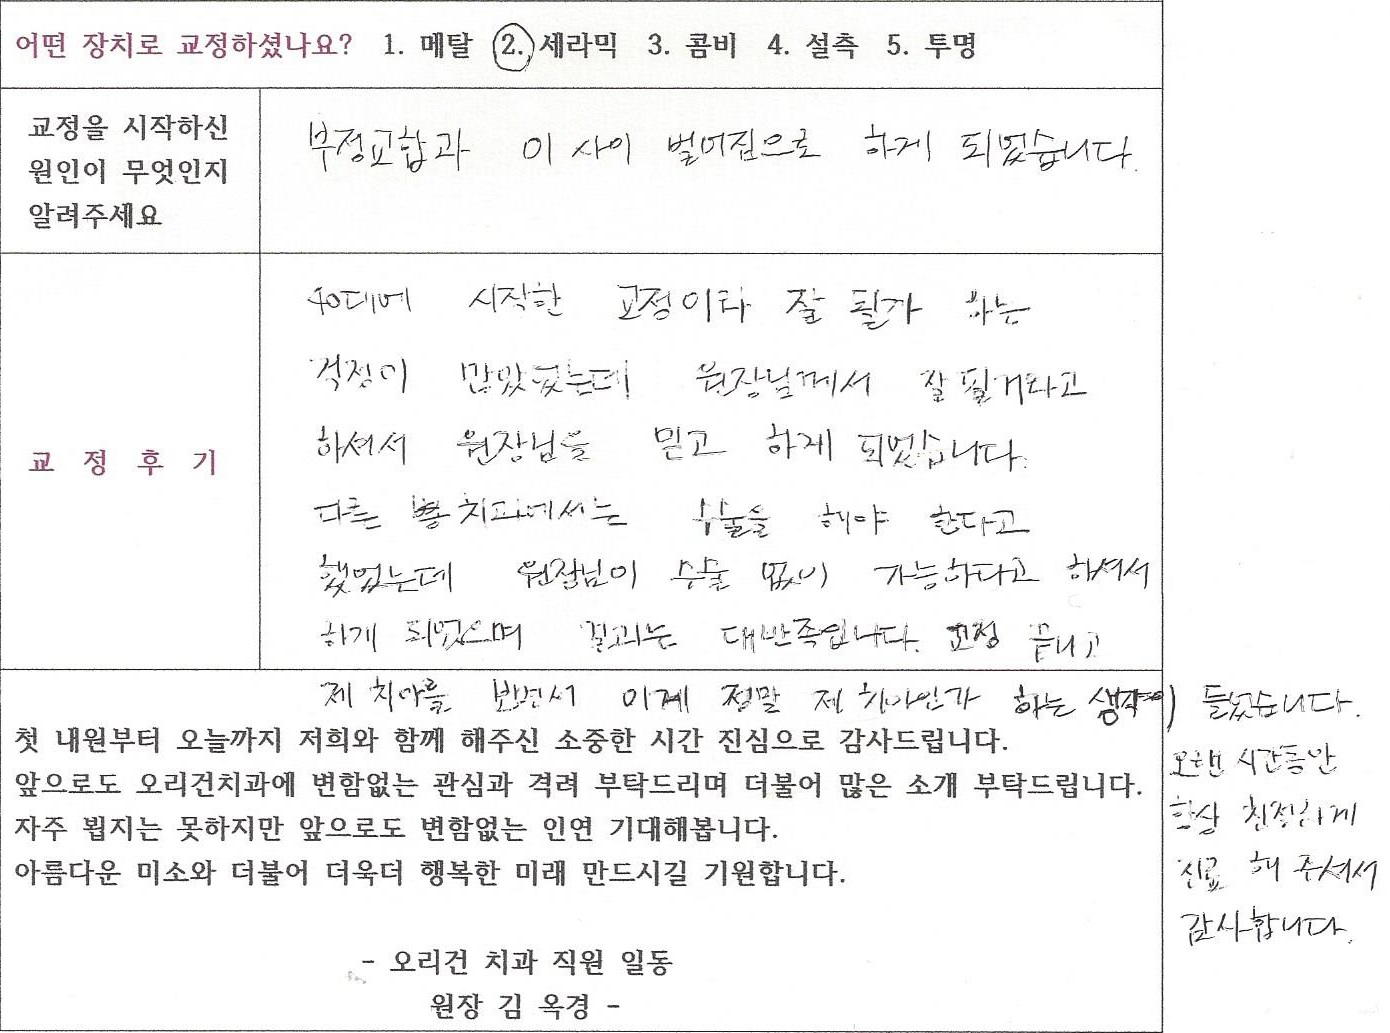 어떤 장치로 교정하셨나요? 1. 메탈 2. 세라믹 3. 콤비 4. 설측 5. 투명
교정을 시작하신
원인이 무엇인지
알려주세요
부정교합과 이 사이 벌어짐으로 하게 되었습니다.
교 정 후 기
40대에 시작한 교정이라 잘 될가 하는
걱정이 많았었는데 원장님께서 잘 될거라고
하셔서 원장님을 믿고 하게 되었습니다.
다른 치과에서는 수술을 해야 한다고
했었는데 원장님이 수술 없이 가능하다고 하셔서
하게 되었으며 결과는 대만족입니다. 교정 끝나고
제 치아를 보면서 이게 정말 제 치아인가 하는 생각이 들었습니다.
오랜 시간동안
항상 친절하게
진료 해 주셔서
감사합니다.
첫 내원부터 오늘까지 저희와 함께 해주신 소중한 시간 진심으로 감사드립니다.
앞으로도 오리건치과에 변함없는 관심과 격려 부탁드리며 더불어 많은 소개 부탁드립니다.
자주 뵙지는 못하지만 앞으로도 변함없는 인연 기대해봅니다.
아름다운 미소와 더불어 더욱더 행복한 미래 만드시길 기원합니다.
- 오리건 치과 직원 일동
원장 김 옥경 -